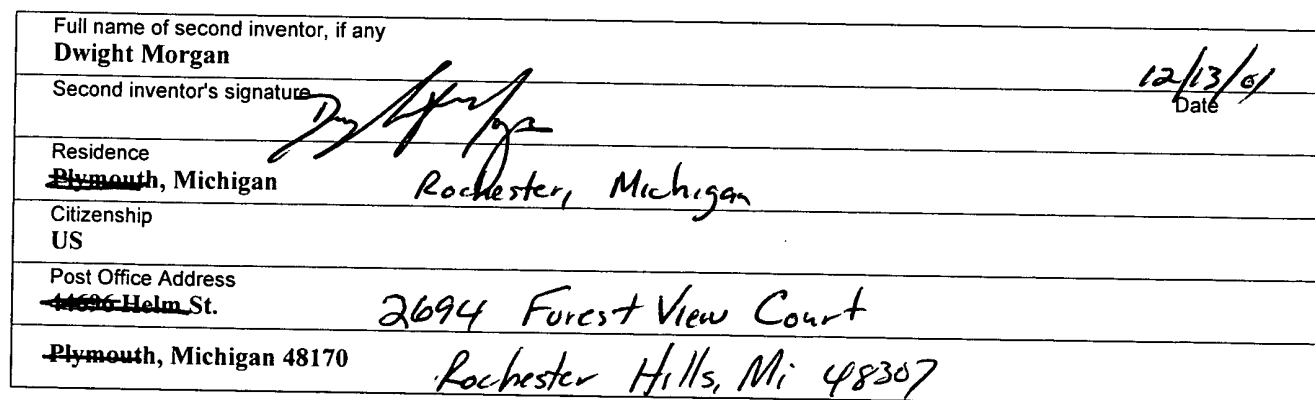 Full name of second inventor, if any
Dwight Morgan
12/13/01
Second inventor's signature
Date
Residence
Plymouth, Michigan Rochester, Michigan
Citizenship
US
Post Office Address
44696 Helm St. 2694 Forest View Court
Plymouth, Michigan 48170 Rochester Hills, Mi 48307